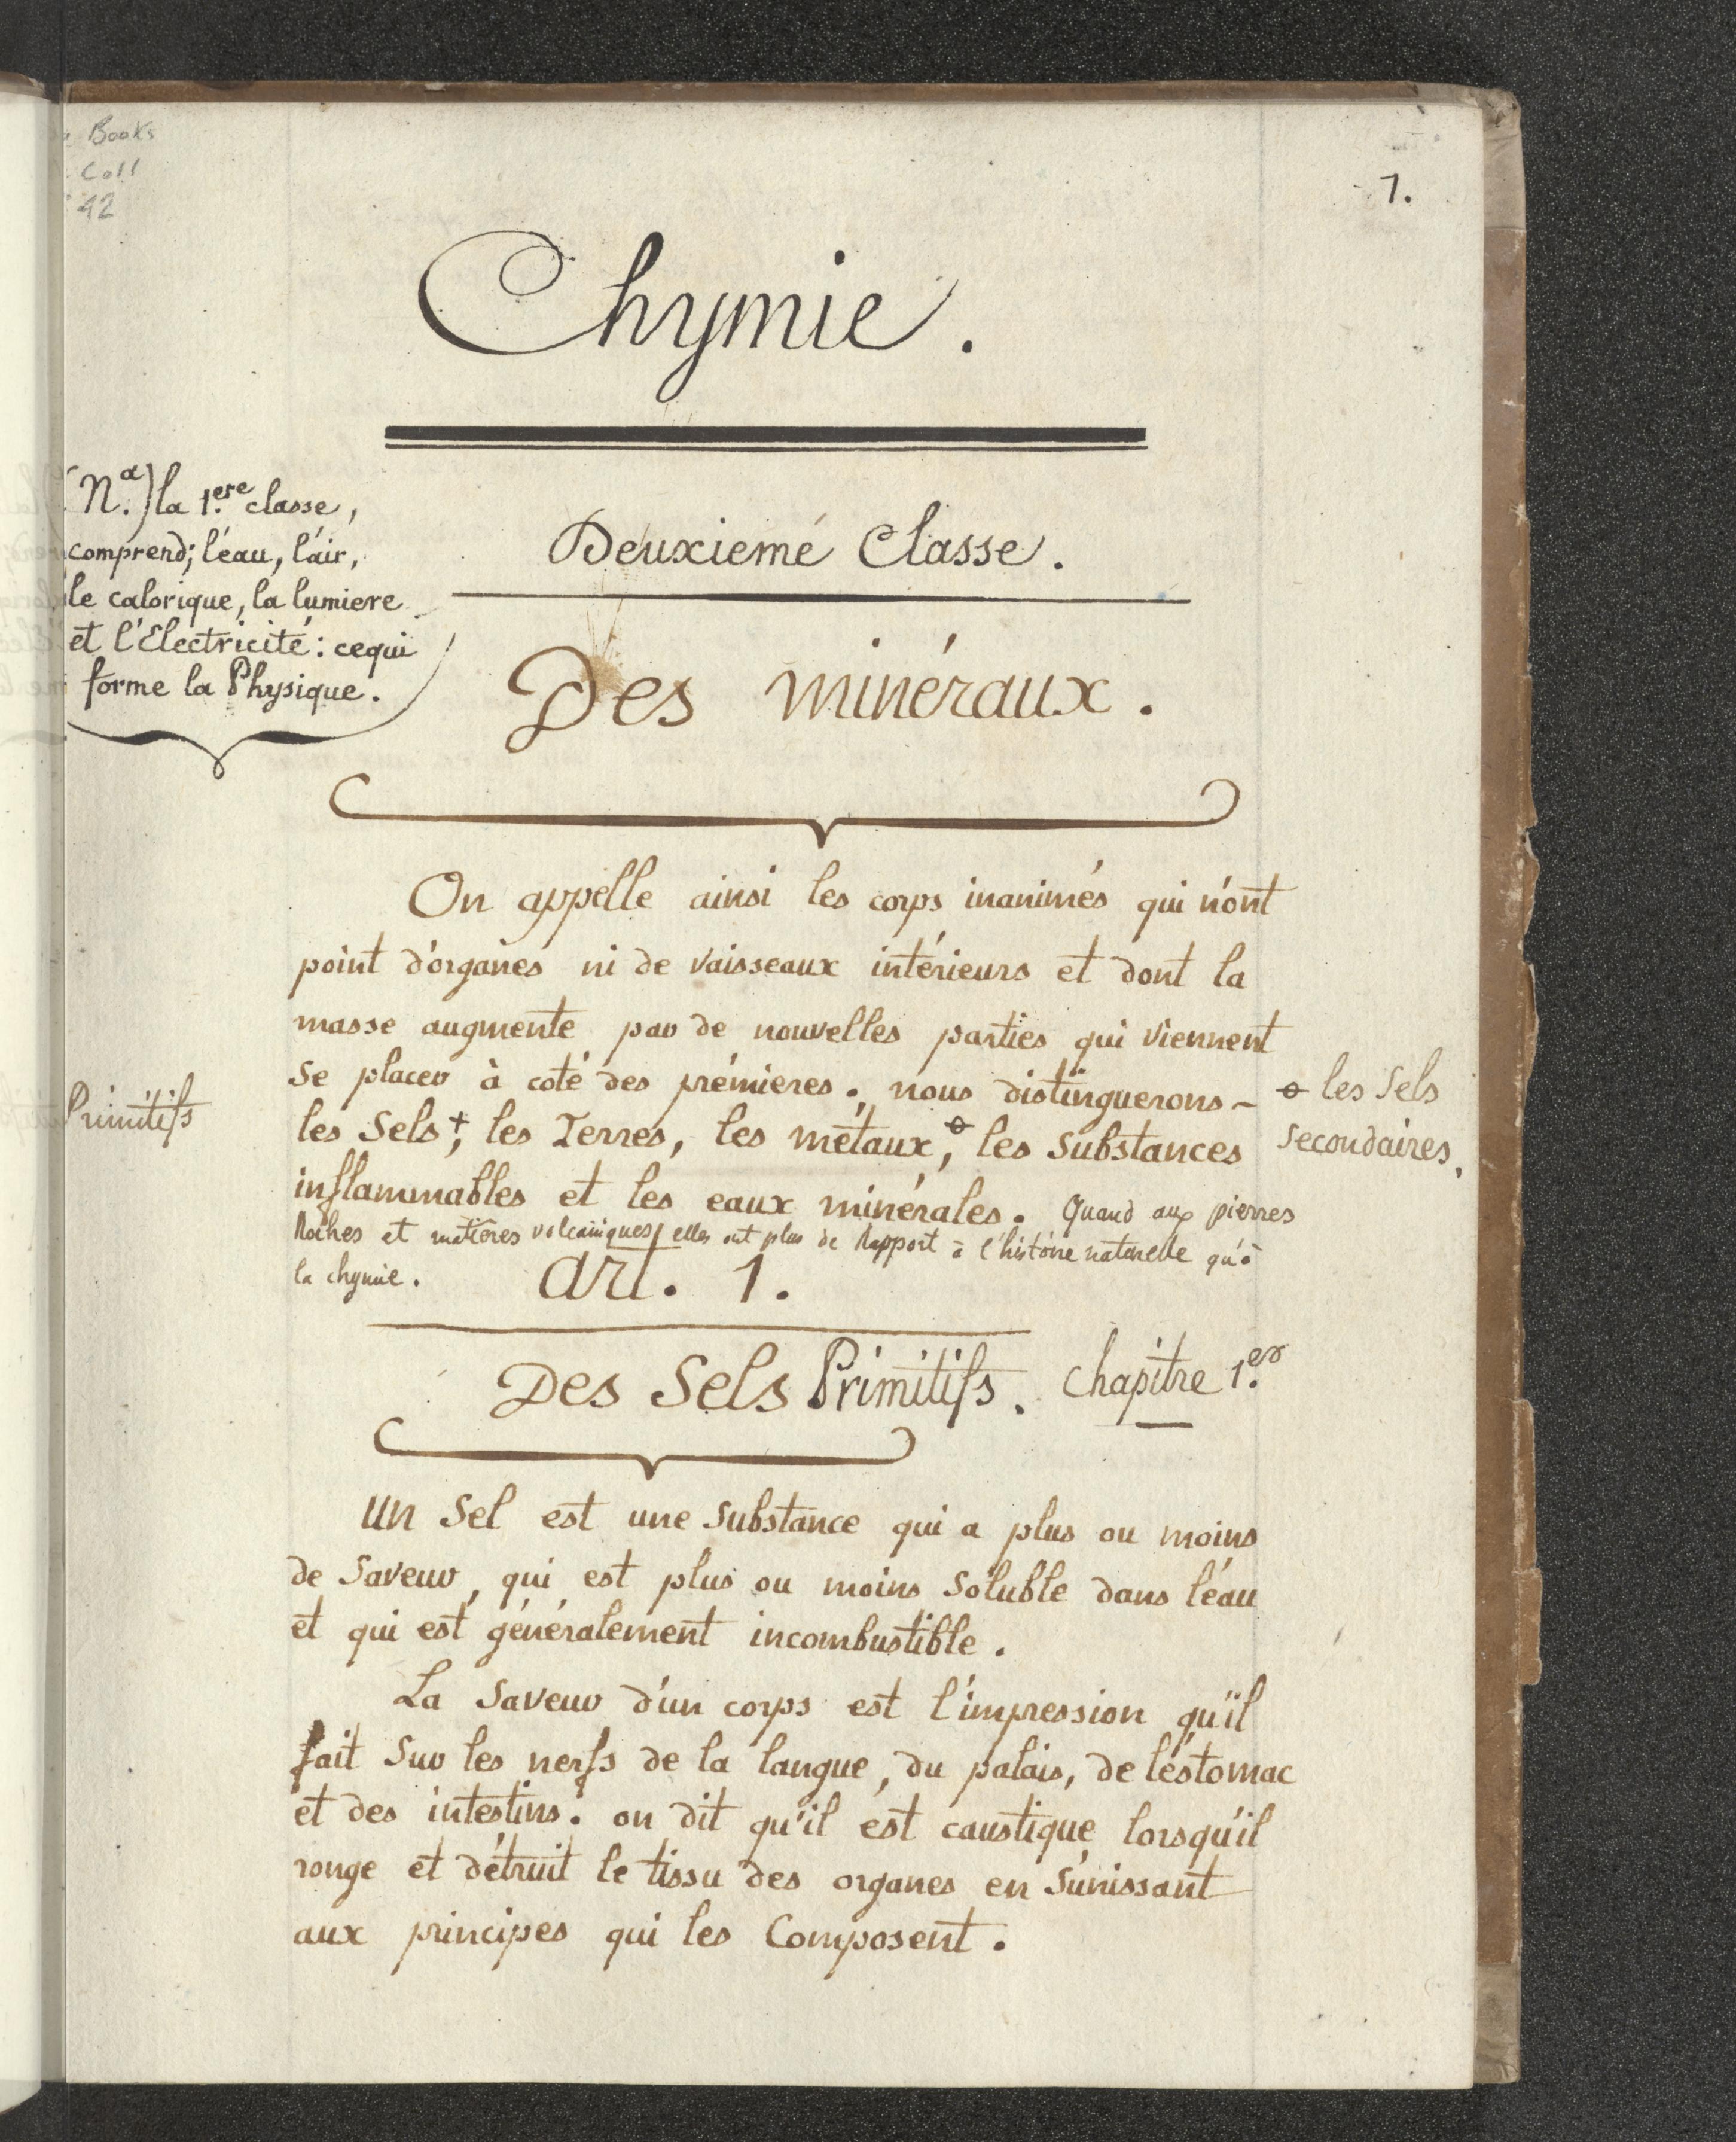 Books
Coll
42
1.
Chymie.
(Nª.) la 1.ere classe,
comprend; l'eau, l'air,
le calorique, la lumiere
et l'Electricité: cequi
forme la Physique.
Deuxiemé Classe.
Des minéraux.
On appelle ainsi les corps inanimés qui n'ont
point d'organes ni de vaisseaux intérieurs et dont la
masse augmente par de nouvelles parties qui viennent
se placer à coté des prémieres. nous distinguerons -
les Sels +, les Terres, les métaux, ⊖ les Substances
inflammables et les eaux minérales. Quand aux pierres
Roches et matieres volcaniques, elles ont plus de Rapport à l'histoire naturelle qu'à
la chymie.
Primitifs
⊖ les Sels
Secondaires.
Art. 1.
Des Sels Primitifs. Chapitre 1.er
Un Sel est une Substance qui a plus ou moins
de Saveur, qui est plus ou moins Soluble dans l'eau
et qui est généralement incombustible.
La Saveur d'un corps est l'impression qu'il
fait Sur les nerfs de la langue, du palais, de l'estomac
et des intestins. on dit qu'il est caustique lorsqu'il
ronge et détruit le tissu des organes en S'unissant
aux principes qui les Composent.